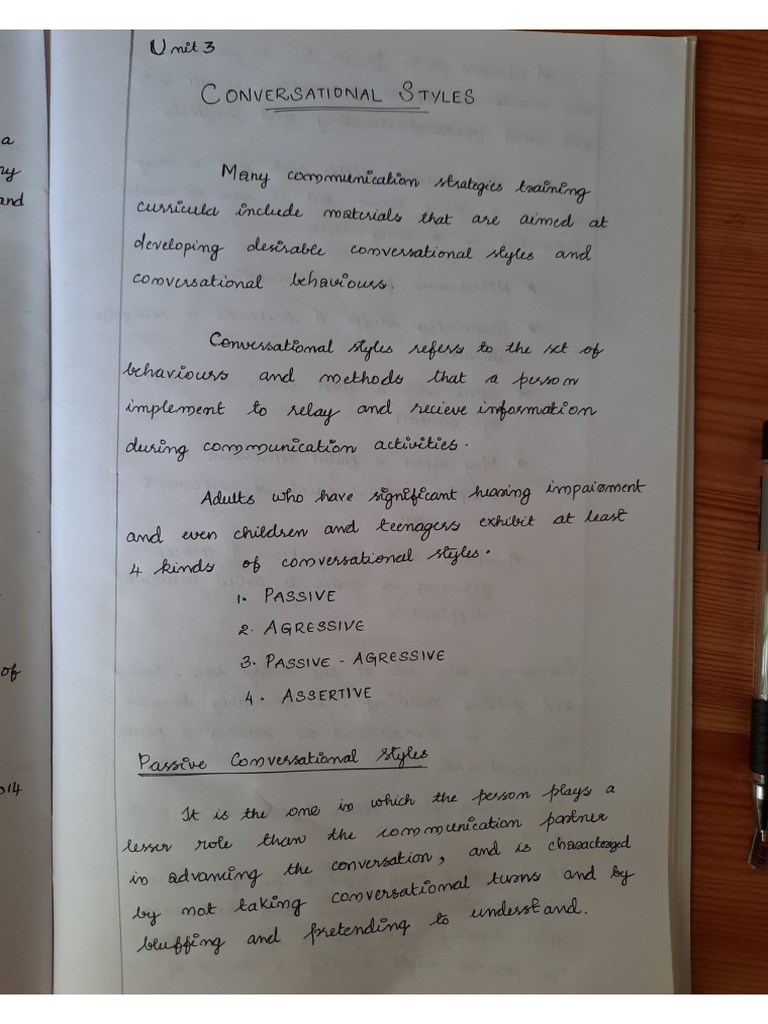 Unit 3
CONVERSATIONAL STYLES
Many communication strategies training
curricula include materials that are aimed at
developing desirable conversational styles and
conversational behaviours.
Conversational styles refers to the set of
behaviours and methods that a person
implement to relay and recieve information
during communication activities.
Adults who have significant hearing impairment
and even children and teenagers exhibit at least
4 kinds of conversational styles.
1. PASSIVE
2. AGRESSIVE
3. PASSIVE - AGRESSIVE
4. ASSERTIVE
Passive Conversational Styles
It is the one in which the person plays a
lesser role than the communication partner
in advancing the conversation, and is characterized
by not taking conversational turns and by
bluffing and pretending to understand.
a
ny
and
of
014